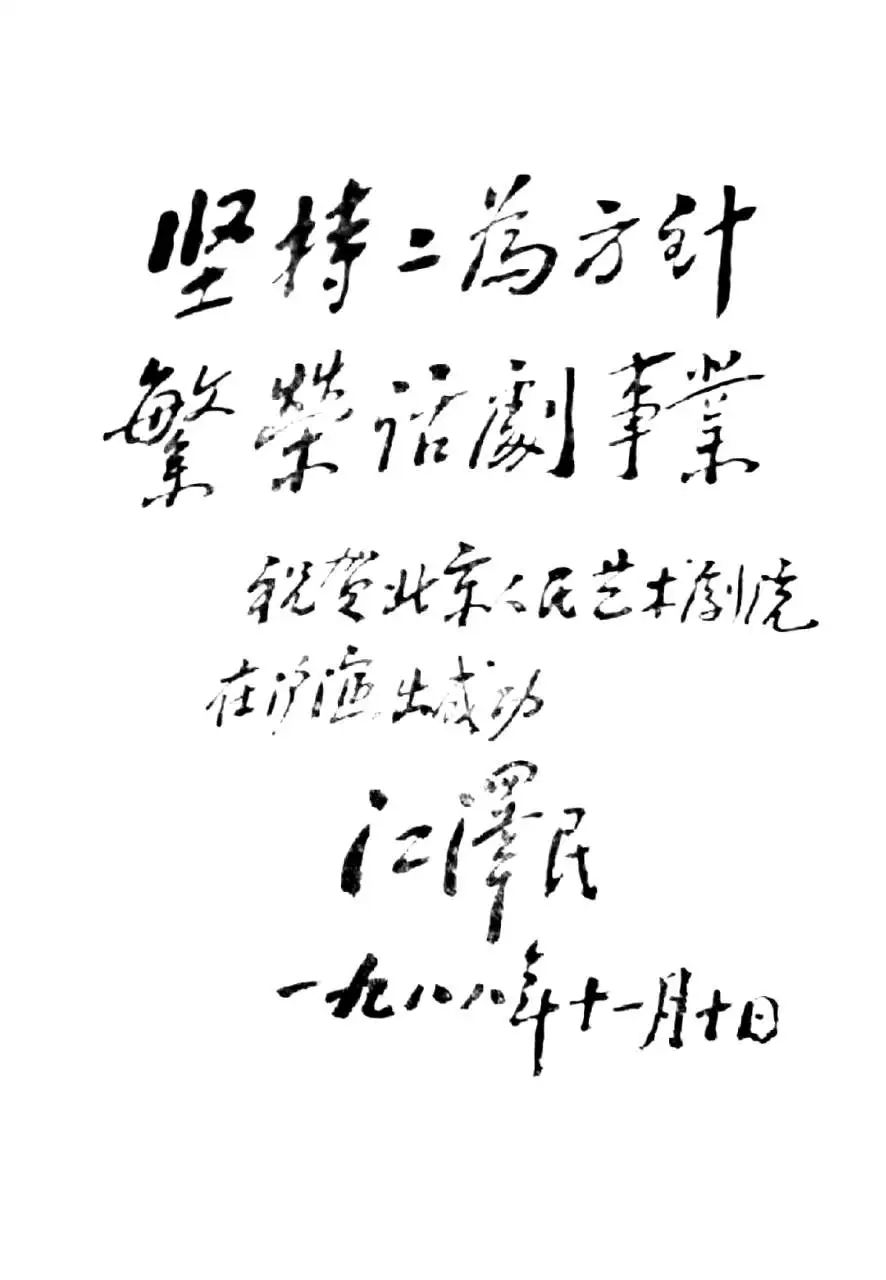 坚持二为方针
繁榮话劇事業
祝贺北京人民艺术劇院
在沪演出成功
江澤民
一九八八年十一月十日